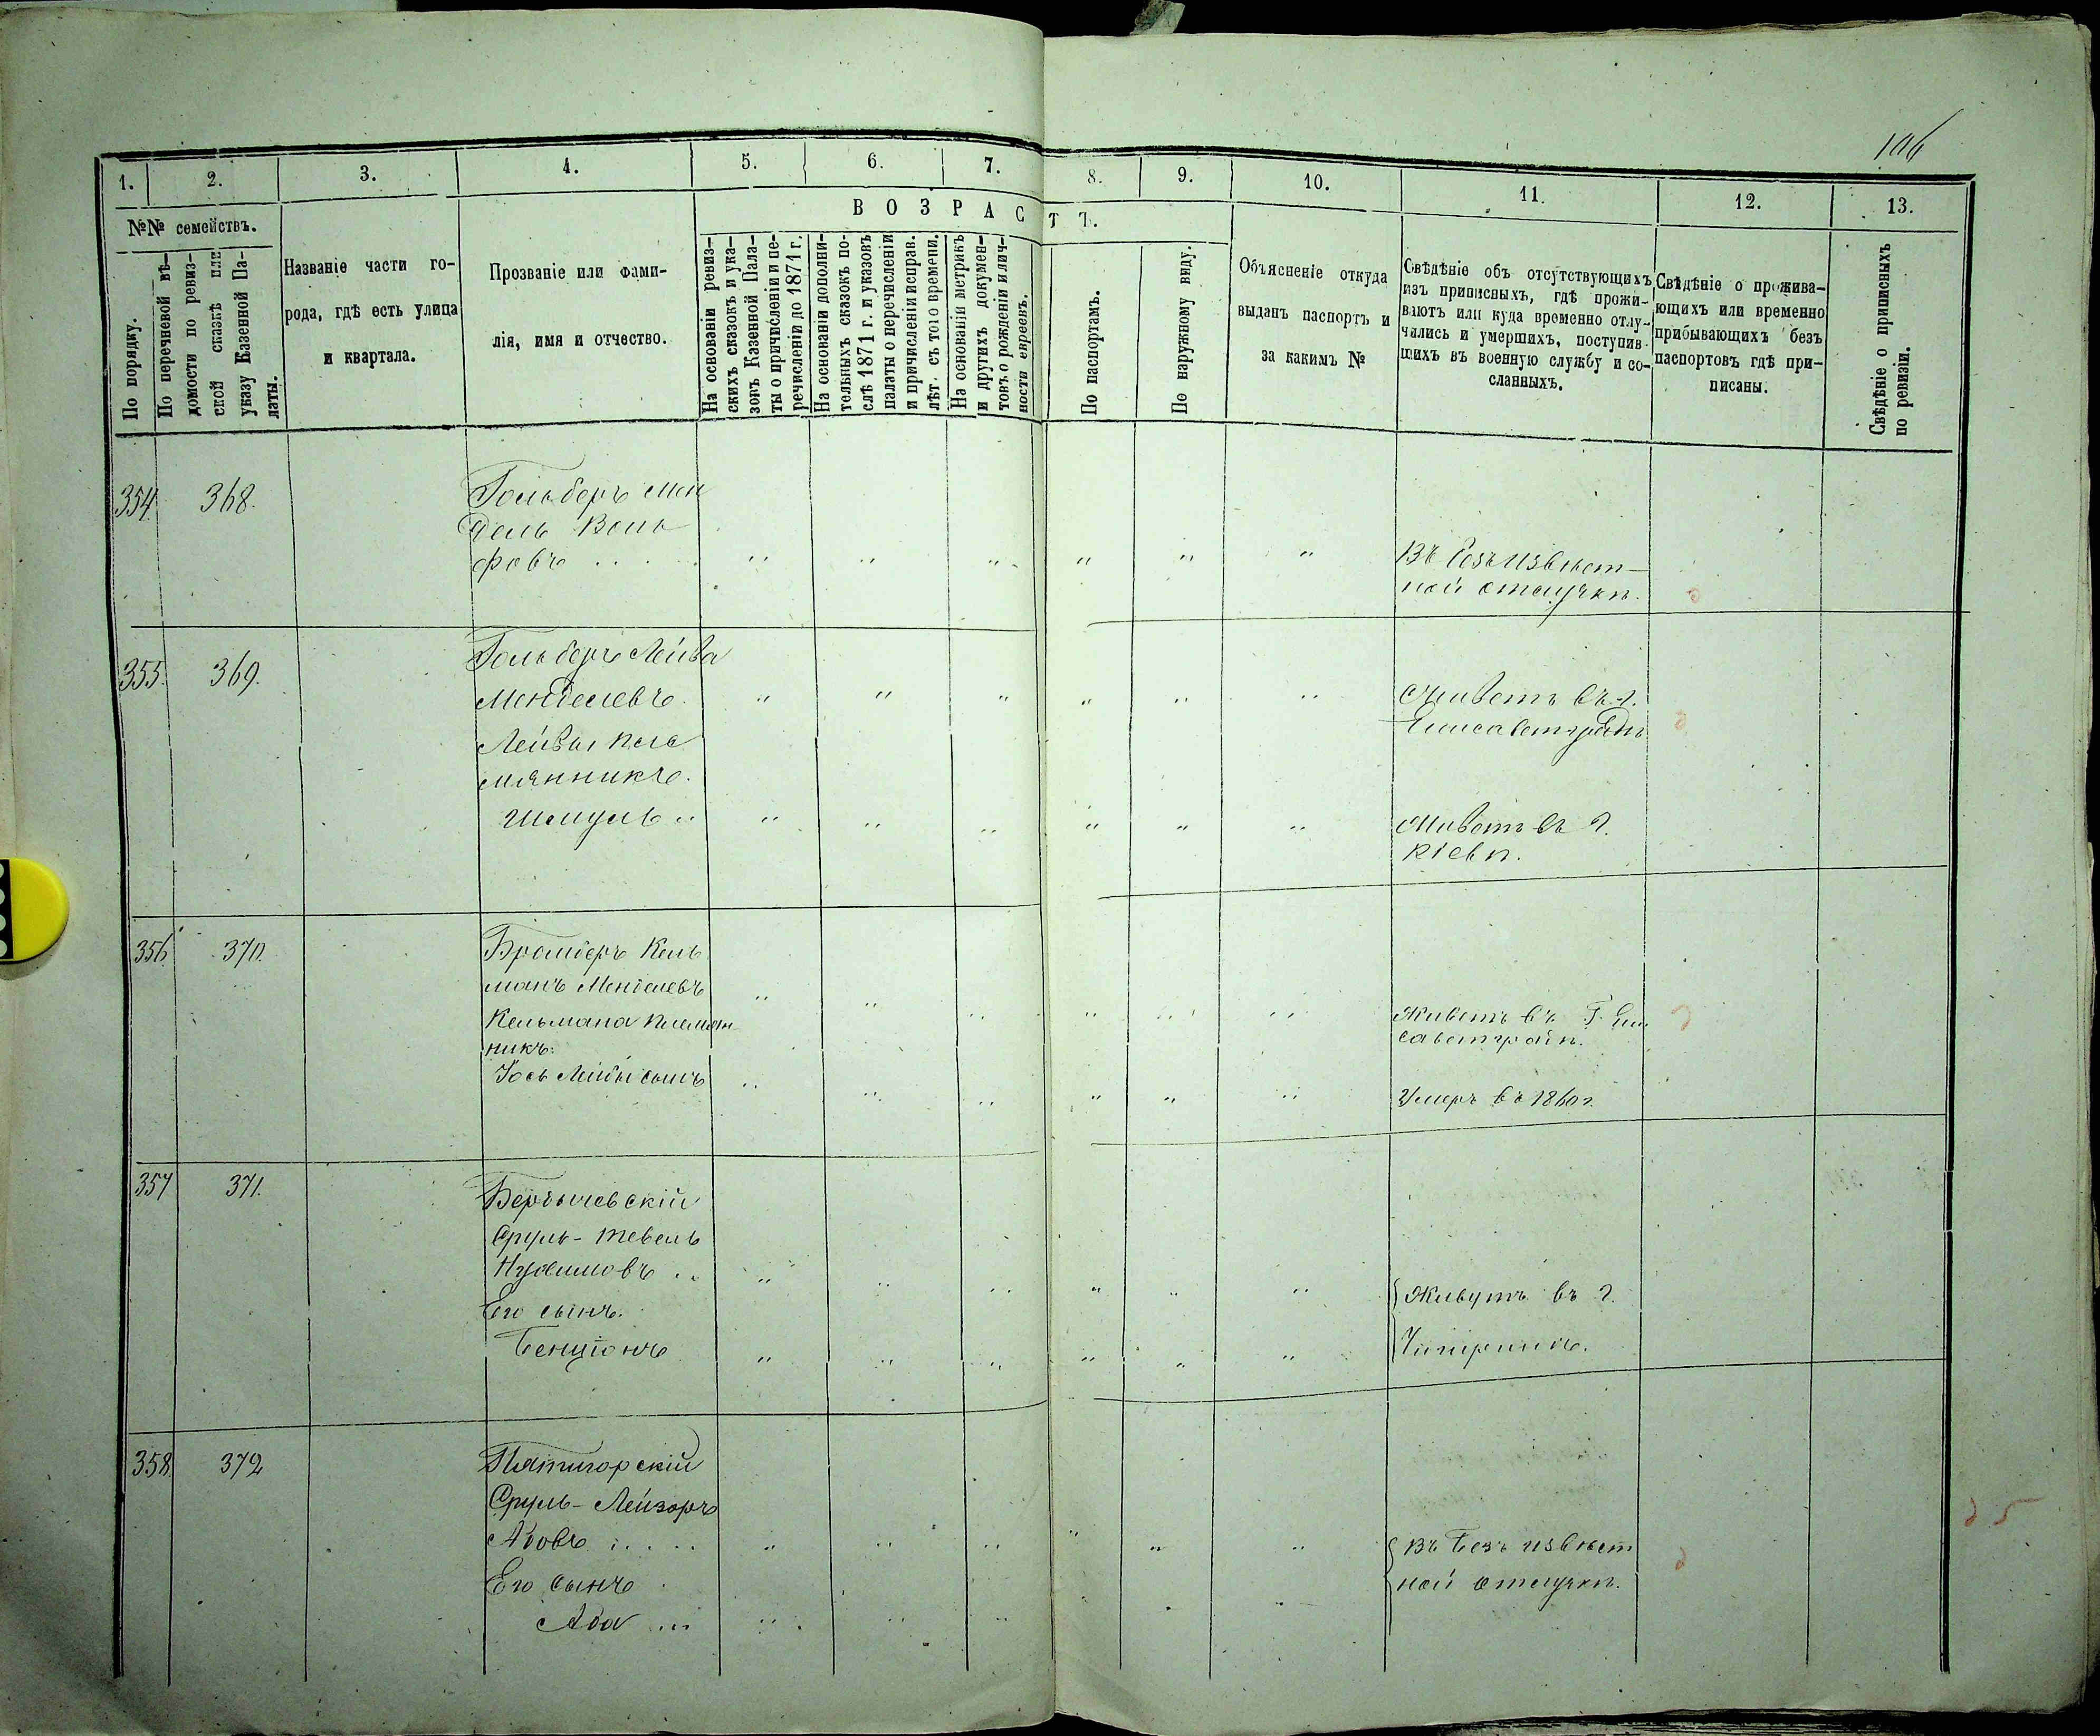 106
1. 2. 3. 4. 5. 6. 7. 8. 9. 10. 11. 12. 13.
№№ семействъ.
По порядку.
По перечневой вѣ-
домости по ревиз-
ской сказкѣ или
указу Казенной Па-
латы.
Названіе части го-
рода, гдѣ есть улица
и квартала.
Прозваніе или фами-
лія, имя и отчество.
ВОЗРАСТЪ.
На основаніи ревиз-
скихъ сказокъ и ука-
зовъ Казенной Пала-
ты о причисленіи и пе-
речисленіи до 1871 г.
На основаніи дополни-
тельныхъ сказокъ по-
слѣ 1871 г. и указовъ
палаты о перечисленіи
и причисленіи исправ.
лѣт. съ того времени.
На основаніи метрикъ
и другихъ докумен-
товъ о рожденіи и лич-
ности евреевъ.
По паспортамъ.
По наружному виду.
Объясненіе откуда
выданъ паспортъ и
за какимъ №
Свѣдѣніе объ отсутствующихъ
изъ приписныхъ, гдѣ прожи-
ваютъ или куда временно отлу-
чались и умершихъ, поступив-
шихъ въ военную службу и со-
сланныхъ.
Свѣдѣніе о прожива-
ющихъ или временно
прибывающихъ безъ
паспортовъ гдѣ при-
писаны.
Свѣдѣніе о приписныхъ
по ревизіи.
354 368.
Гольберъ Мен
дель Воль
фовъ . . . . " " " " " "
Въ безъизвѣст-
ной отлучкѣ.
355. 369.
Гольберъ Лейба
Менделевъ. " " " " " "
Живетъ въ г.
Елисаветградѣ
Лейбы пле
мянникъ.
Шмуль " " " " " " "
Живетъ въ г.
Кіевѣ.
356. 370.
Бромберъ Кель
манъ Менделевъ " " " " " "
Живетъ въ Г. Ели
саветградѣ.
Кельмана племян-
никъ:
Іось Лейбы сынъ " " " " " "
Умеръ въ 1860 г.
357 371.
Бердычевскій
Сруль-Тевель
Нухимовъ .. " " " " " "
Живутъ въ г.
Его сынъ.
Бенціонъ " " " " " "
Чигиринѣ.
358. 372
Пятигорскій
Сруль-Лейзоръ
Абовъ . . . . " " " " " "
Въ безъ извѣст
Его сынъ
ной отлучкѣ.
Аба ... " " "